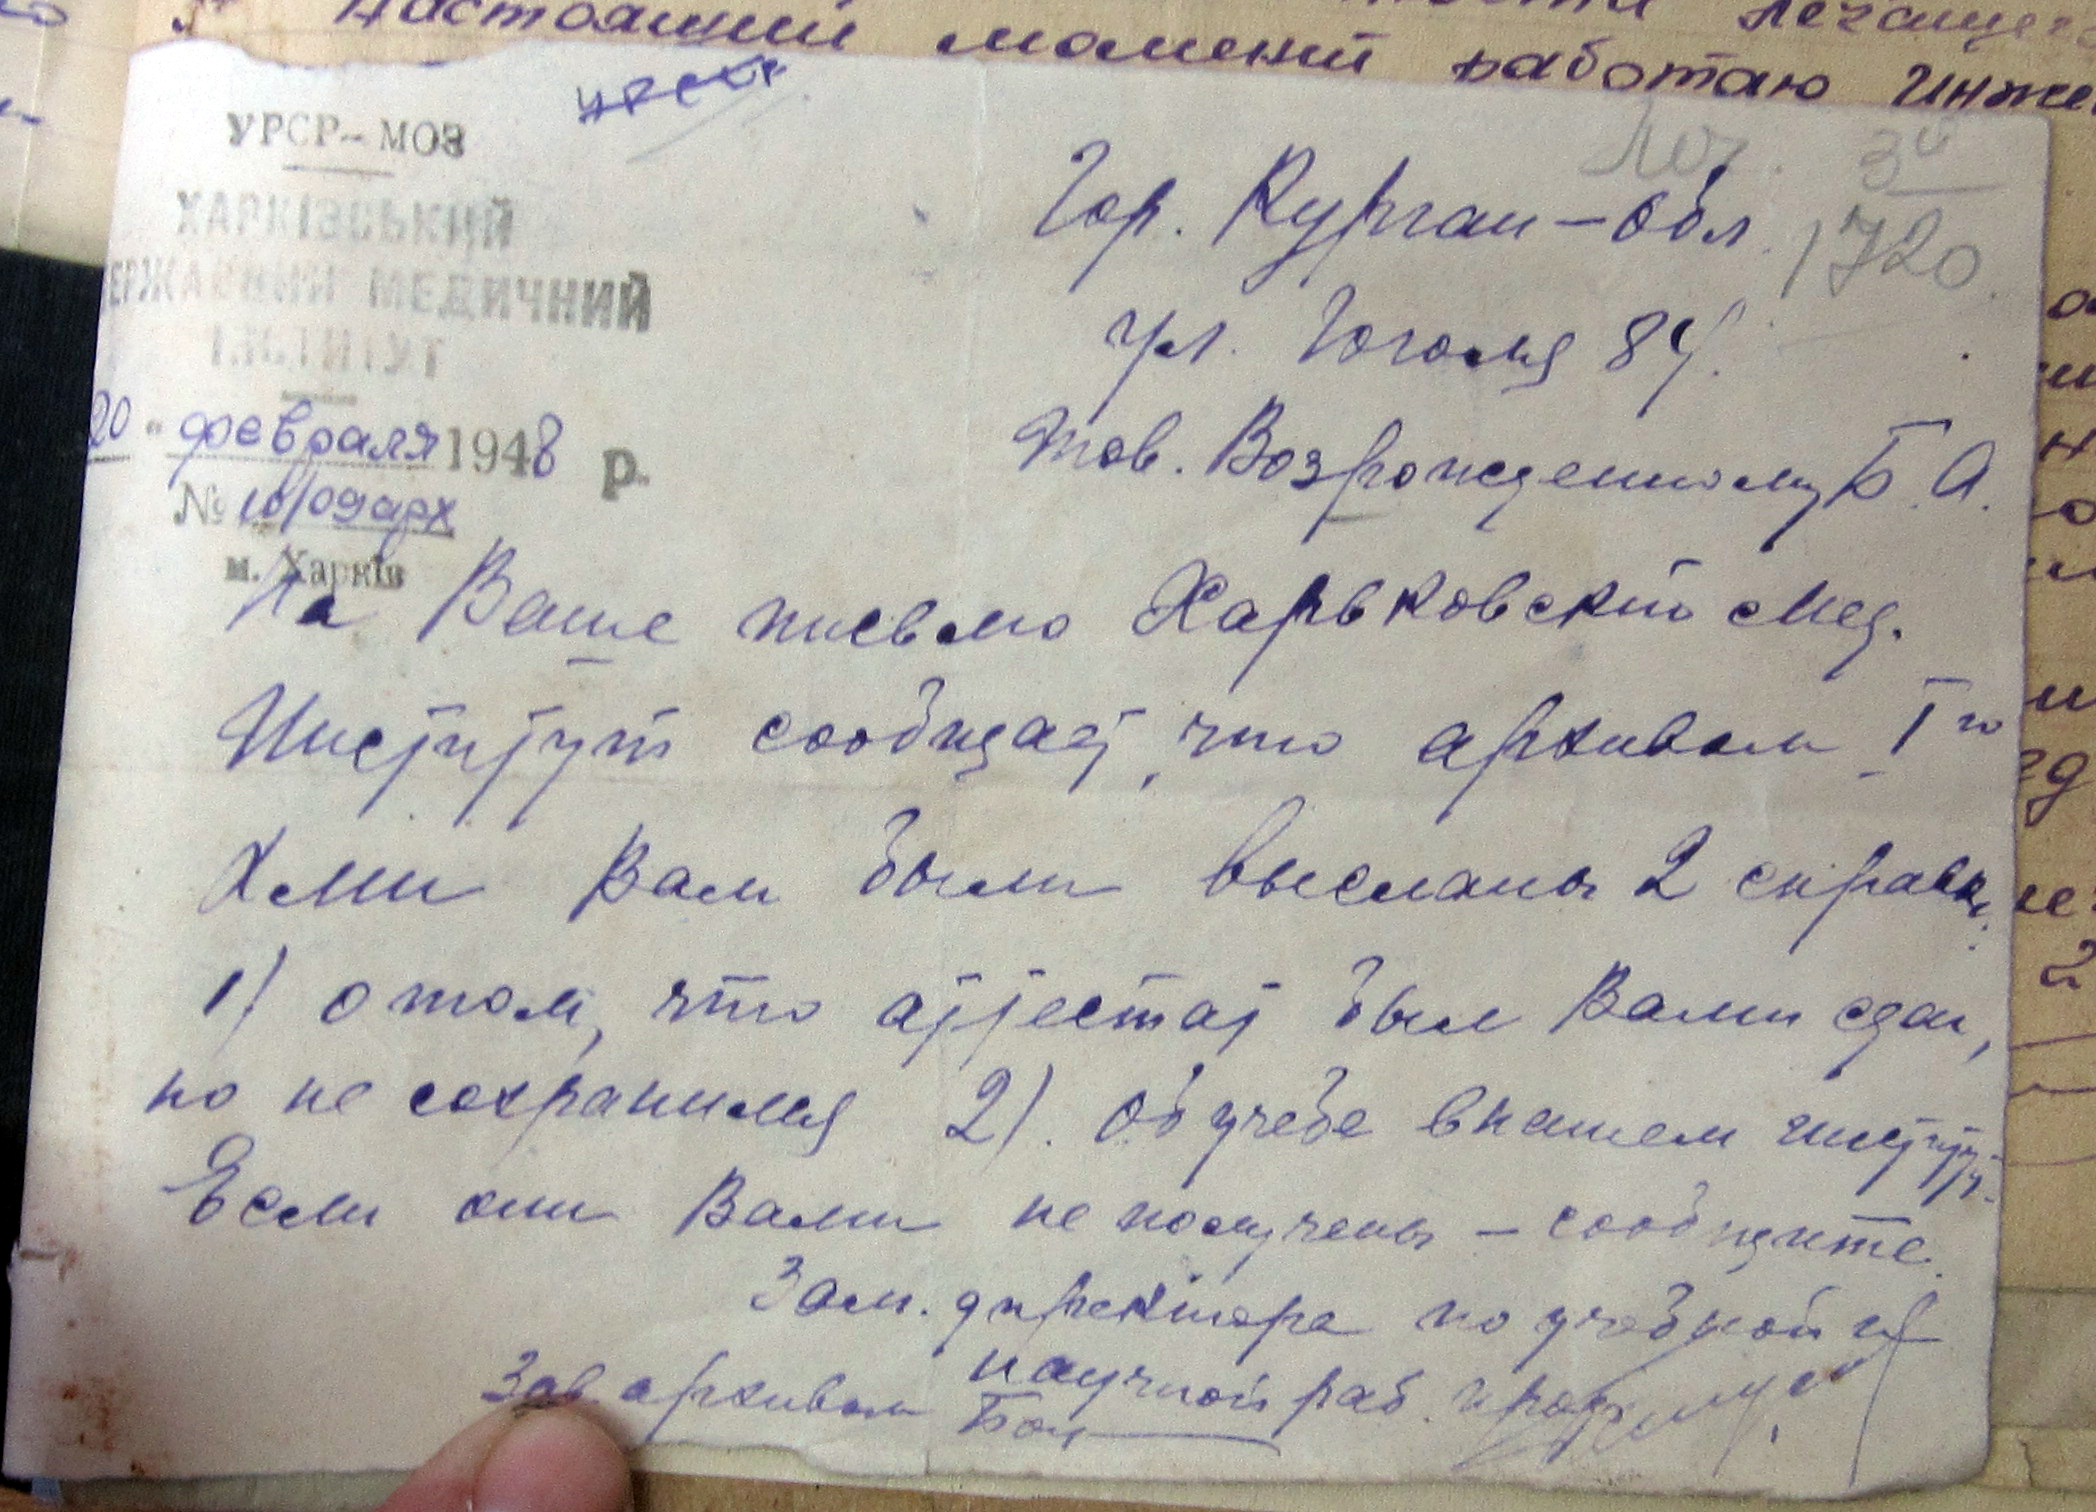 настоящий момент работаю инже
УРСР — МОЗ
ХАРКІВСЬКИЙ
ДЕРЖАВНИЙ МЕДИЧНИЙ
ІНСТИТУТ
20 " февраля 1948 р.
№
м. Харків
1720
Гор. Курган – обл.
ул. Гоголя 84.
тов. Возрожденному Б. А.
На Ваше письмо Харьковский Мед.
Институт сообщает, что архивом 1го
ХМИ Вам были высланы 2 справки:
1) о том, что аттестат был Вами сдан,
но не сохранился 2). об учебе в нашем институт.
Если они Вами не получены – сообщите.
Зам. директора по учебной и
научной раб. проф.
Зав. архивом